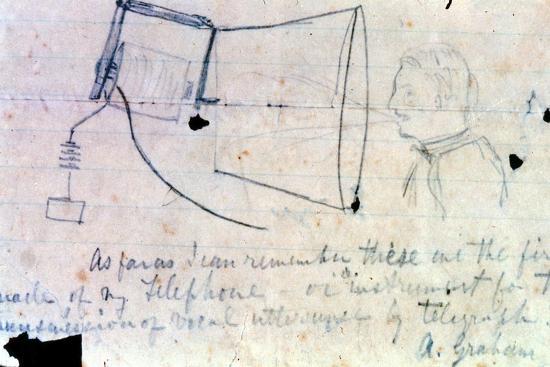 As far as I can remember these are the fir
made of my Telephone - or instrument for t
ransmission of vocal utterance by telegraph.
A. Graham